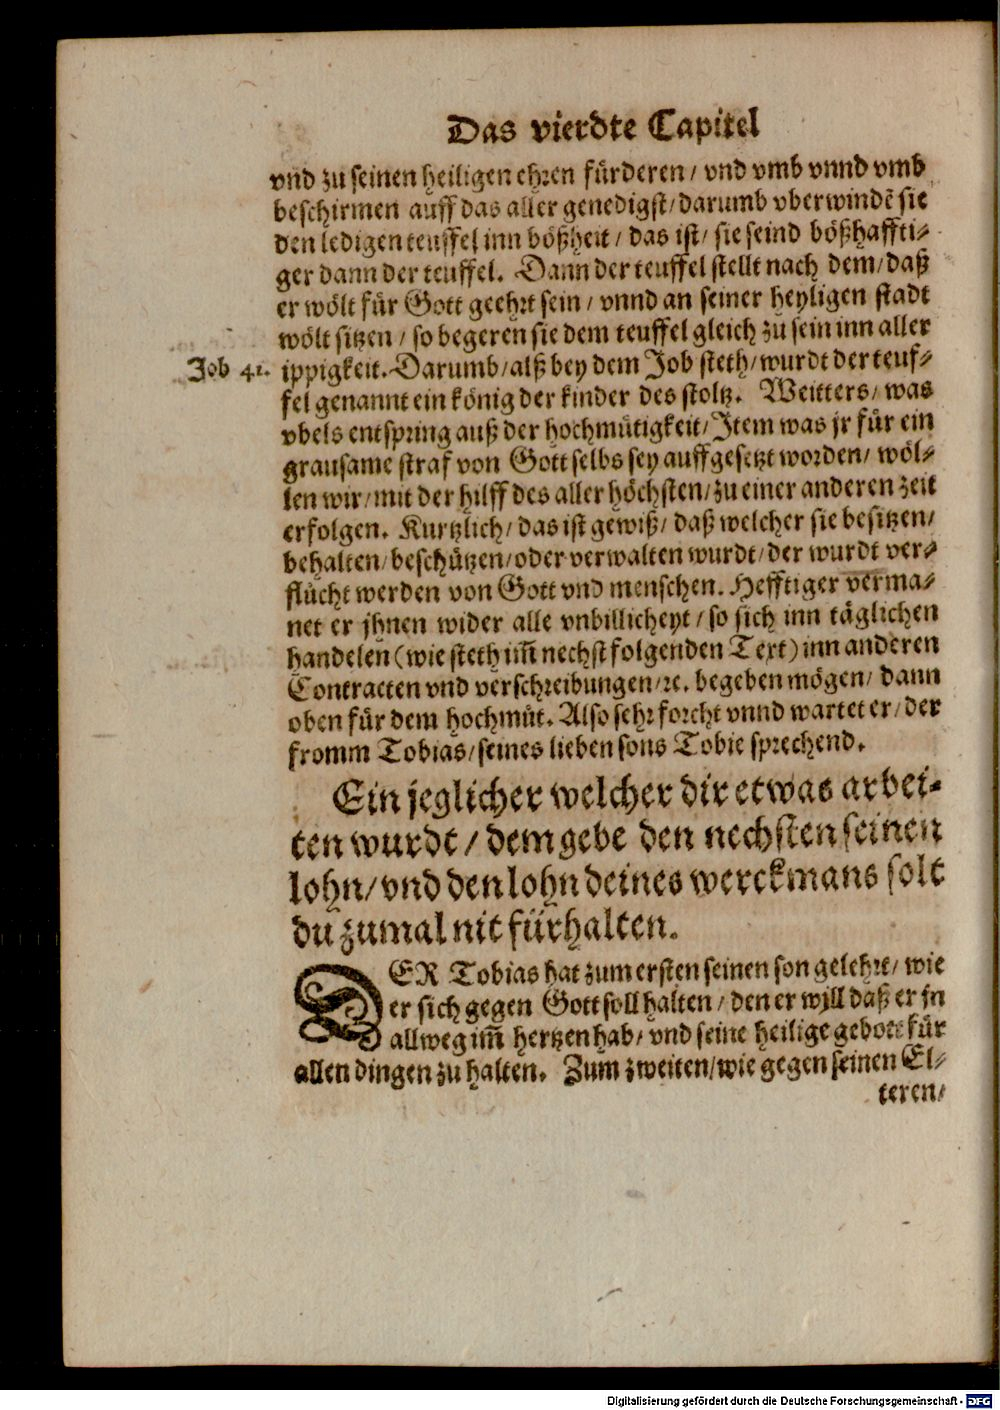 Das vierdte Capitel
vnd zu seinen heiligen ehren fürderen / vnd vmb vnnd vmb
beschirmen auff das aller genedigst / darumb vberwindẽ sie
den ledigen teuffel inn bößheit / das ist / sie seind bößhaffti-
ger dann der teuffel. Dann der teuffel stellt nach dem / daß
er wölt für Gott geehrt sein / vnnd an seiner heyligen stadt
wölt sitzen / so begeren sie dem teuffel gleich zu sein inn aller
Job 41. ippigkeit. Darumb / alß bey dem Job steth / wurdt der teuf-
fel genannt ein könig der kinder des stoltz. Weitters / was
vbels entspring auß der hochmütigkeit / Item was jr für ein
grausame straf von Gott selbs sey auffgesetzt worden / wöl-
len wir / mit der hilff des aller höchsten / zu einer anderen zeit
erfolgen. Kurtzlich / das ist gewiß / daß welcher sie besitzen /
behalten / beschützen / oder verwalten wurdt / der wurdt ver-
flücht werden von Gott vnd menschen. Hefftiger verma-
net er jhnen wider alle vnbillicheyt / so sich inn täglichen
handelen (wie steth im̃ nechst folgenden Text) inn anderen
Contracten vnd verschreibungen / ꝛc. begeben mögen / dann
oben für dem hochmüt. Also sehr forcht vnnd wartet er / der
fromm Tobias / seines lieben sons Tobie sprechend.
Ein jeglicher welcher dir etwas arbei-
ten wurdt / dem gebe den nechsten seinen
lohn / vnd den lohn deines werckmans solt
du zumal nit fürhalten.
DER Tobias hat zum ersten seinen son gelehrt / wie
er sich gegen Gott soll halten / den er wjll daß er jn
allweg im̃ hertzen hab / vnd seine heilige gebott für
allen dingen zu halten. Zum zweiten / wie gegen seinen El-
teren /
Digitalisierung gefördert durch die Deutsche Forschungsgemeinschaft - DFG